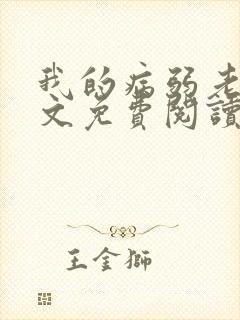 我的病弱老
文免費閱讀
王金獅